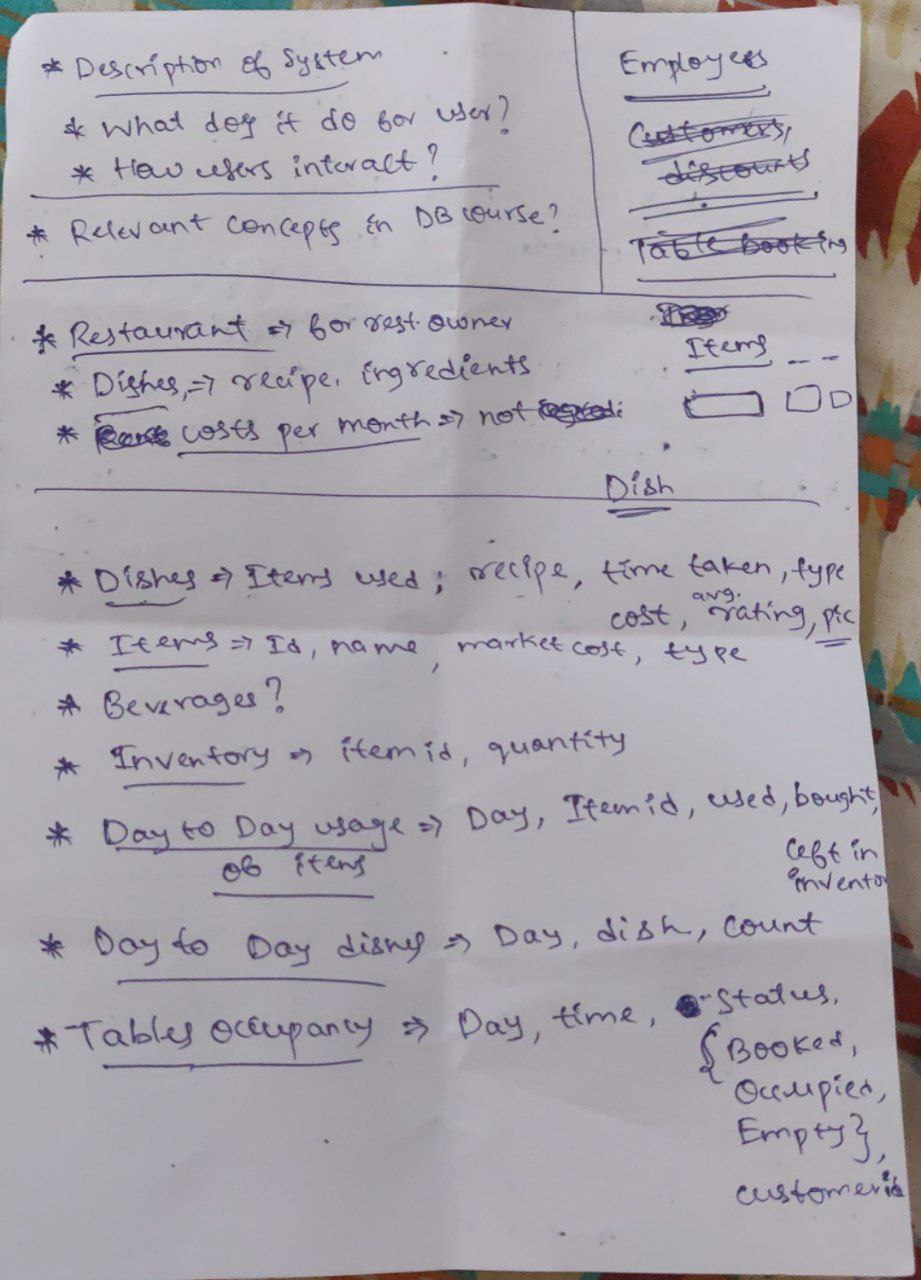 * Description of System
* What does it do for user?
* How users interact?
* Relevant concepts in DB course?
Employees
Customers,
discounts
Table booking
* Restaurant => for rest. owner
* Dishes, => recipe, ingredients
* costs per month => not
Items
Dish
* Dishes => Items used; recipe, time taken, type
cost, avg. rating, pic
* Items => Id, name, market cost, type
* Beverages?
* Inventory => item id, quantity
* Day to Day usage => Day, Item id, used, bought,
of items
left in
invento
* Day to Day dishes => Day, dish, count
* Tables occupancy => Day, time, Status,
{Booked,
Occupied,
Empty},
customer id